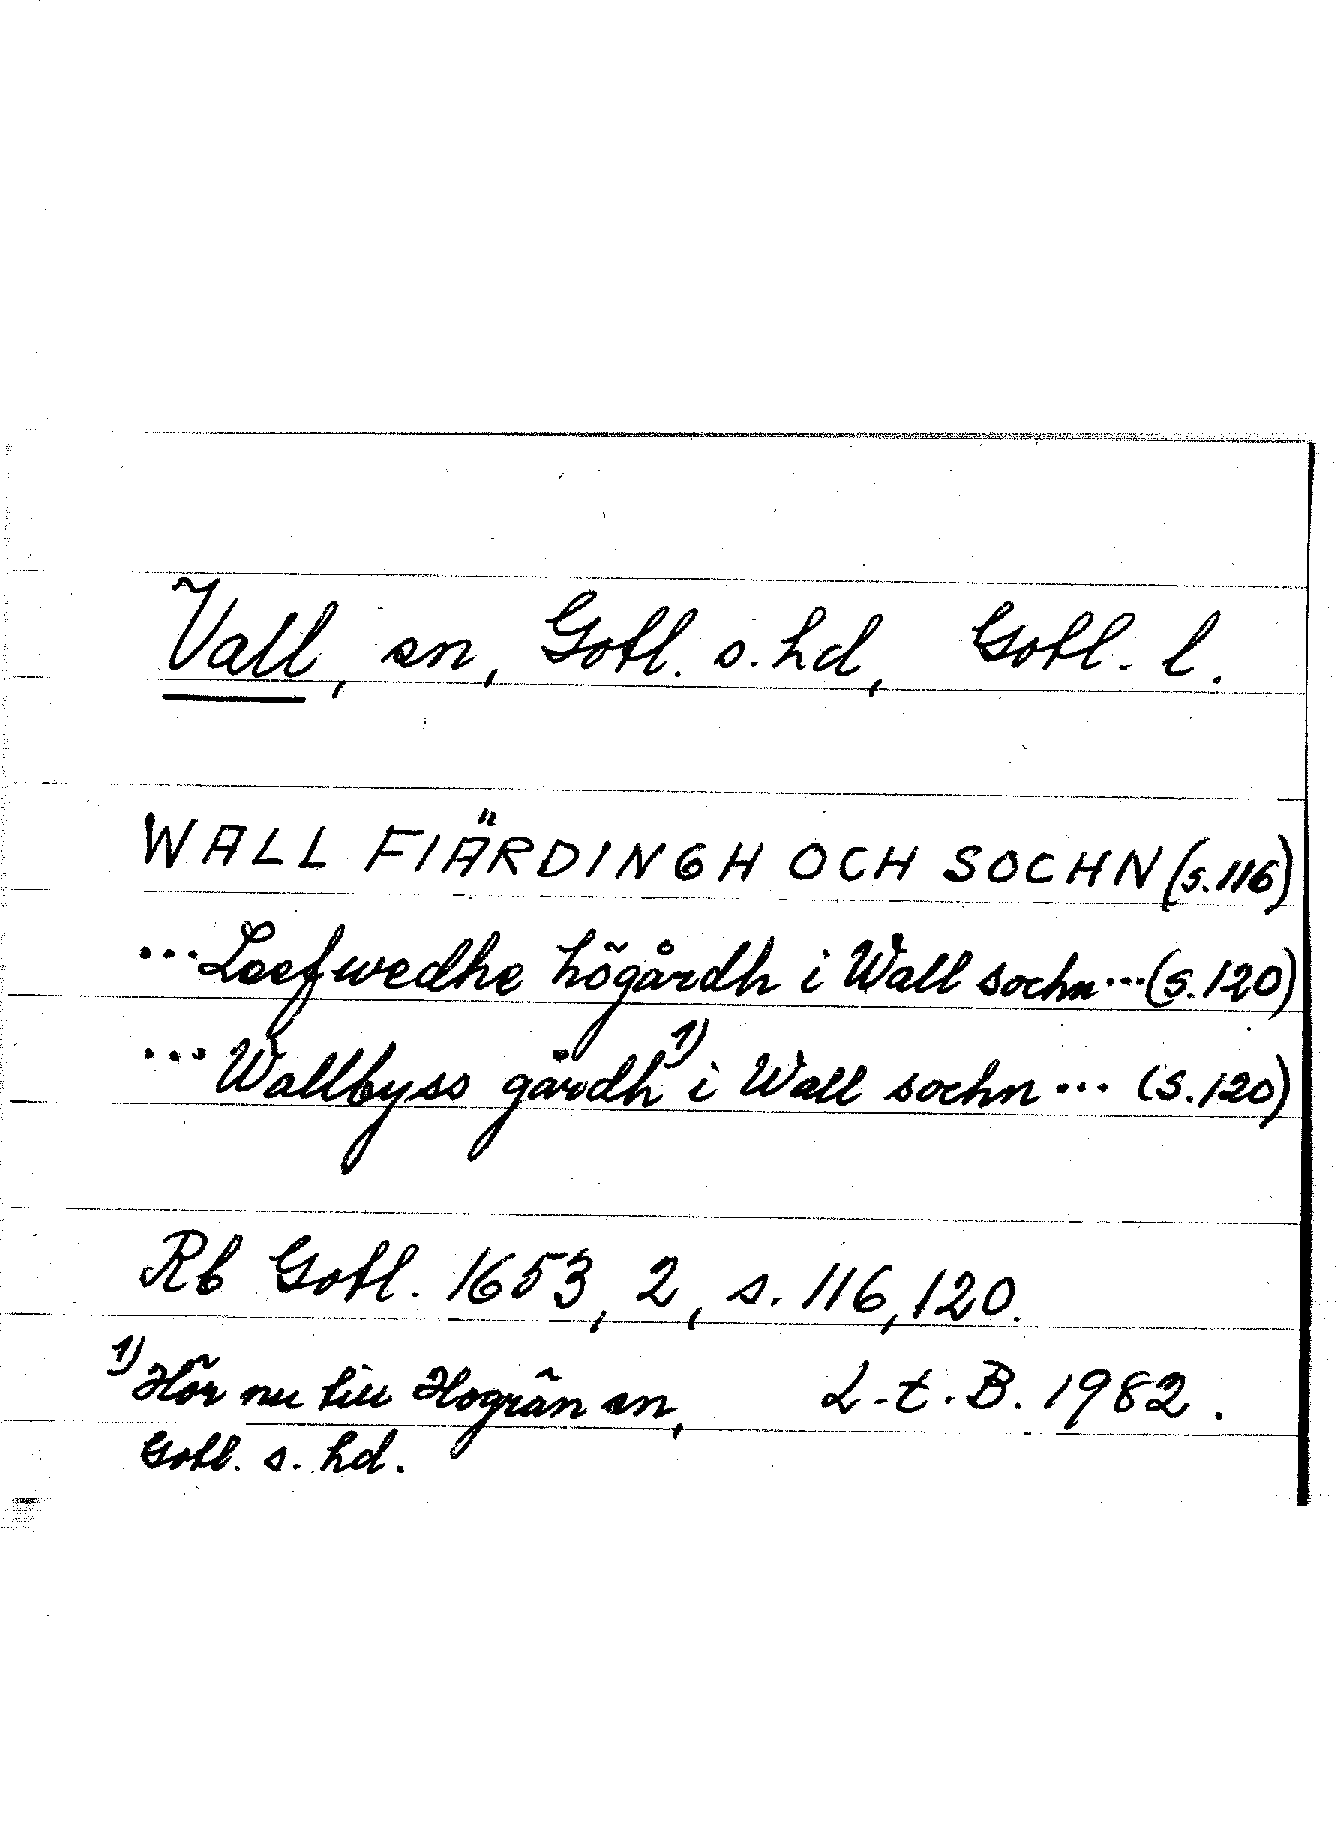 Vall, sn, Gotl. s. hd, Gotl. l.
WALL FIÄRDINGH OCH SOCHN (s. 116)
... Leefwedhe högårdh i Wall sochn ... (s. 120)
... Wallbyss gårdh 1) i Wall sochn ... (s. 120)
Rb Gotl. 1653, 2, s. 116, 120.
1) Hör nu till Hogrän sn, L-t. B. 1982.
Gotl. s. hd.